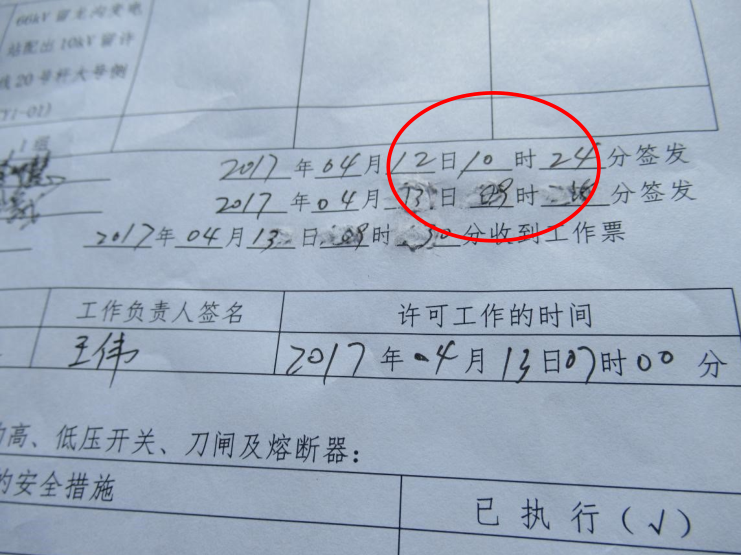 66kV留龙沟变电
站配出10kV留许
线20号杆大号侧
1组
2017年04月12日10时24分签发
2017年04月13日09时分签发
2017年04月13日09时30分收到工作票
工作负责人签名 许可工作的时间
王伟 2017年04月13日07时00分
高、低压开关、刀闸及熔断器：
的安全措施 已执行（√）